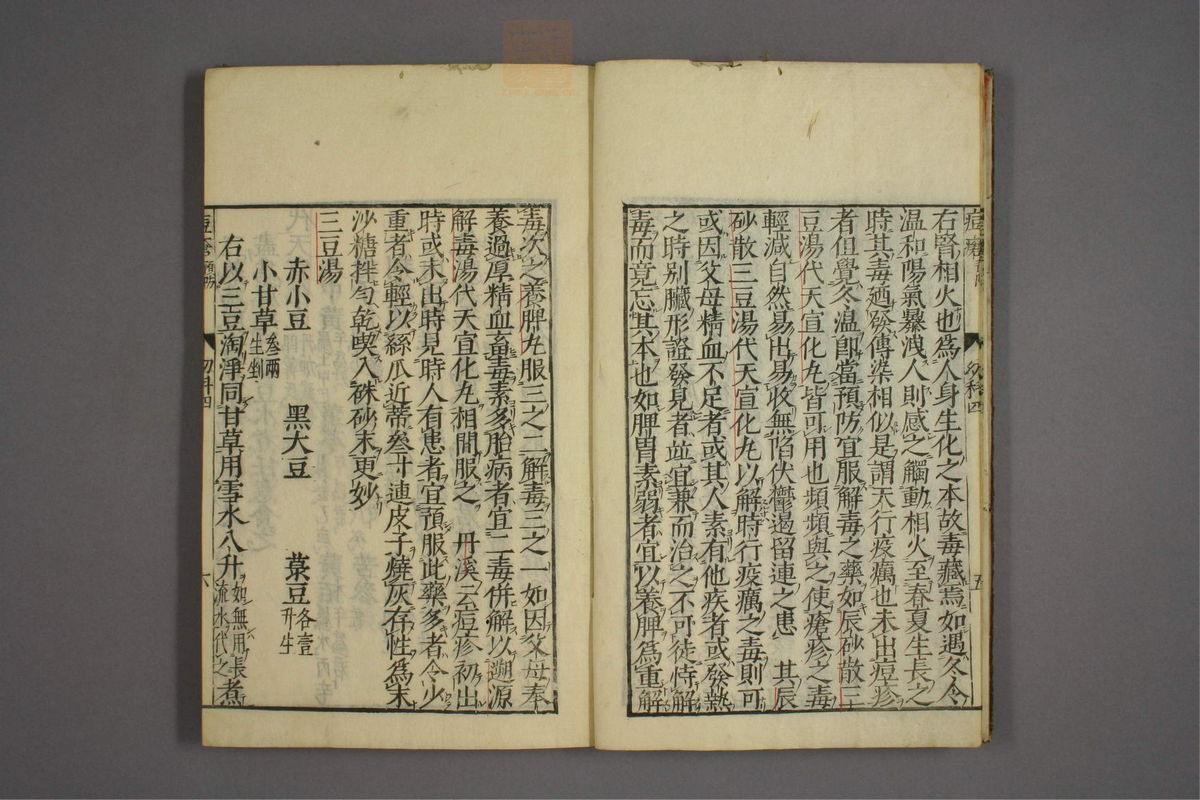 右腎相火也為人身生化之本故毒藏焉如遇冬令
温和陽氣暴洩人則感之觸動相火至春夏生長之
時其毒廼發傳染相似是謂天行疫癘也未出痘疹
者但覺冬温即當預防宜服解毒之藥如辰砂散三
豆湯代天宣化丸皆可用也頻頻與之使瘡疹之毒
輕減自然易出易收無陷伏鬱遏留連之患　其辰
砂散三豆湯代天宣化丸以解時行疫癘之毒則可
或因父母精血不足者或其人素有他疾者或發熱
之時別臟形證發見者並宜兼而治之不可徒恃解
毒而竟忘其本也如脾胃素弱者宜以養脾為重解
五
毒次之養脾丸服三之二解毒三之一如因父母奉
養過厚精血畜毒素多胎病者宜二毒併解以遡源
解毒湯代天宣化丸相間服之　丹溪云痘疹初出
時或未出時見時人有患者宜預服此藥多者令少
重者令輕以絲瓜近蒂叁寸連皮子燒灰存性為末
沙糖拌勻乾喫入硃砂末更妙
三豆湯
赤小豆　黑大豆　菉豆各壹升生
小甘草叁兩生剉
右以三豆淘淨同甘草用雪水八升如無用長流水代之煮
六